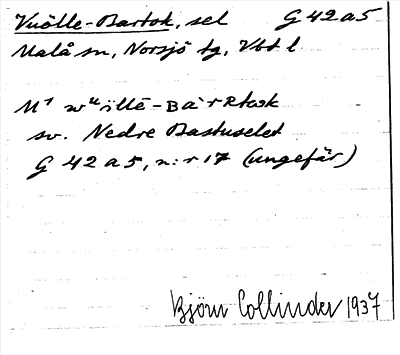 Vuölle-Bartok, sel G 42 a 5
Malå sn, Norsjö tg, Vbt l
sv. Nedre Bastuselet
G 42 a 5, n:r 17 (ungefär)
Björn Collinder 1937